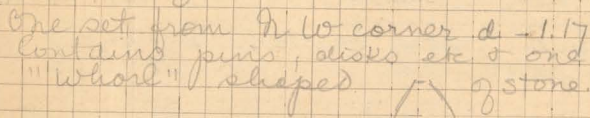 One set from N W corner d -1.17
Containing pins, disks etc & one
"Whorl" shaped of stone.